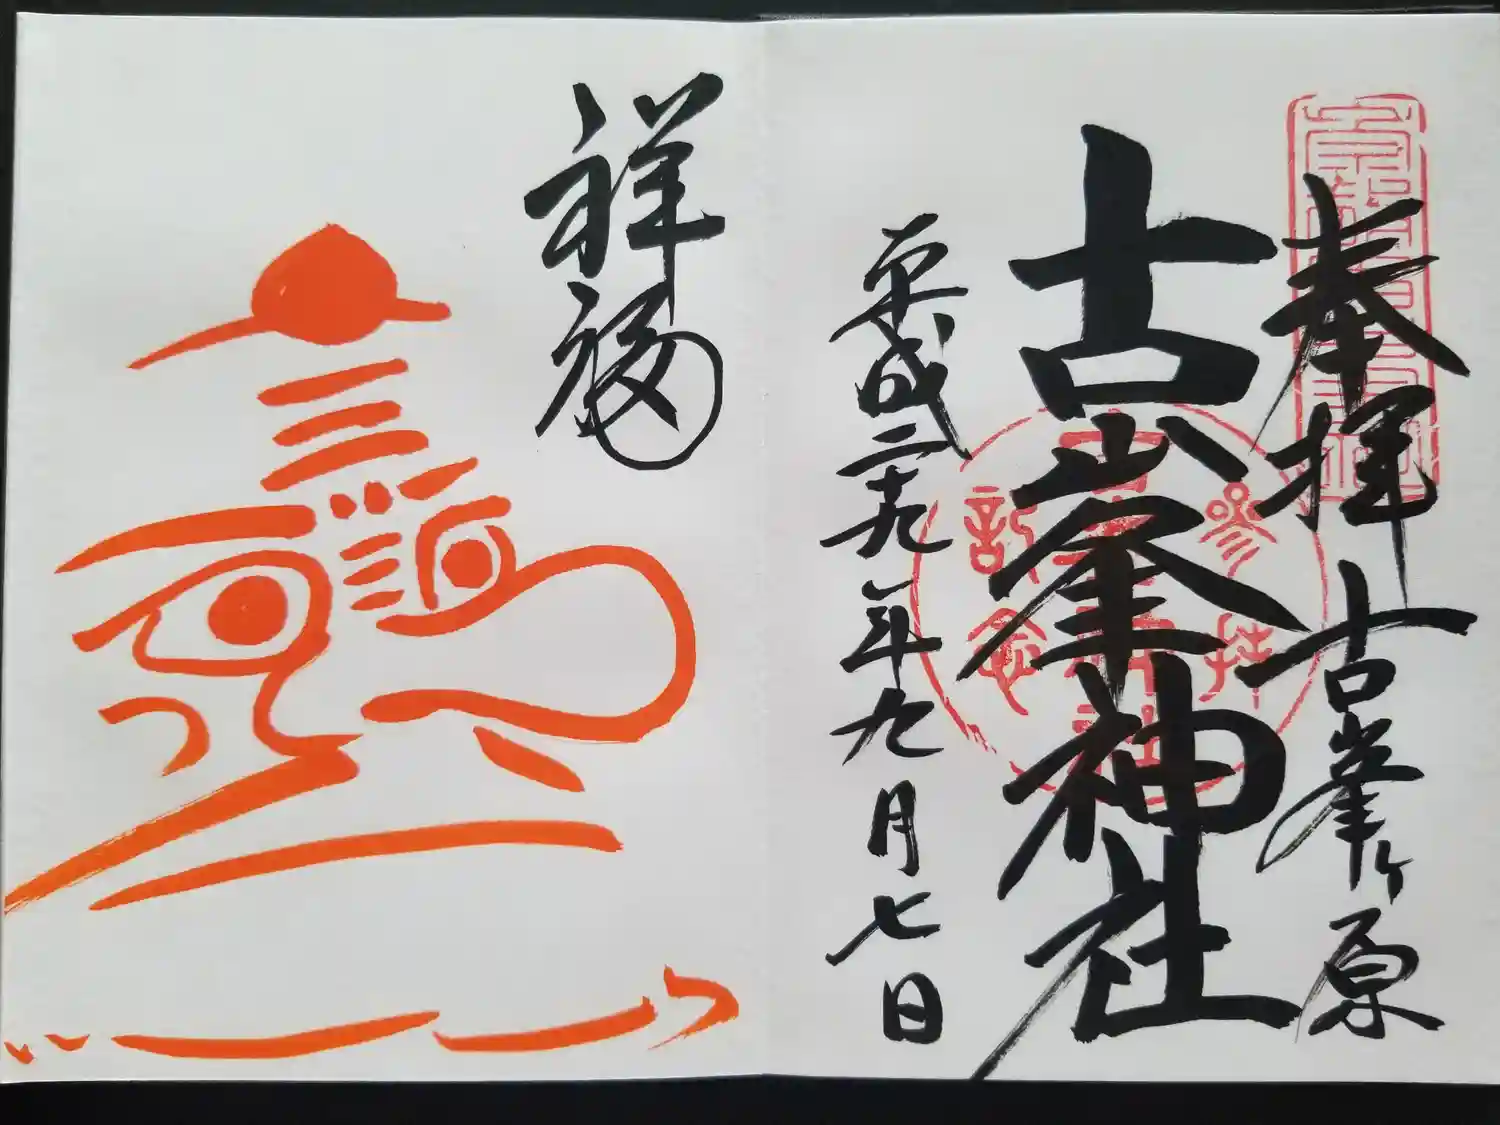 奉拝 古峯ヶ原
古峯神社
平成二十九年九月七日
祥福
参拝記念